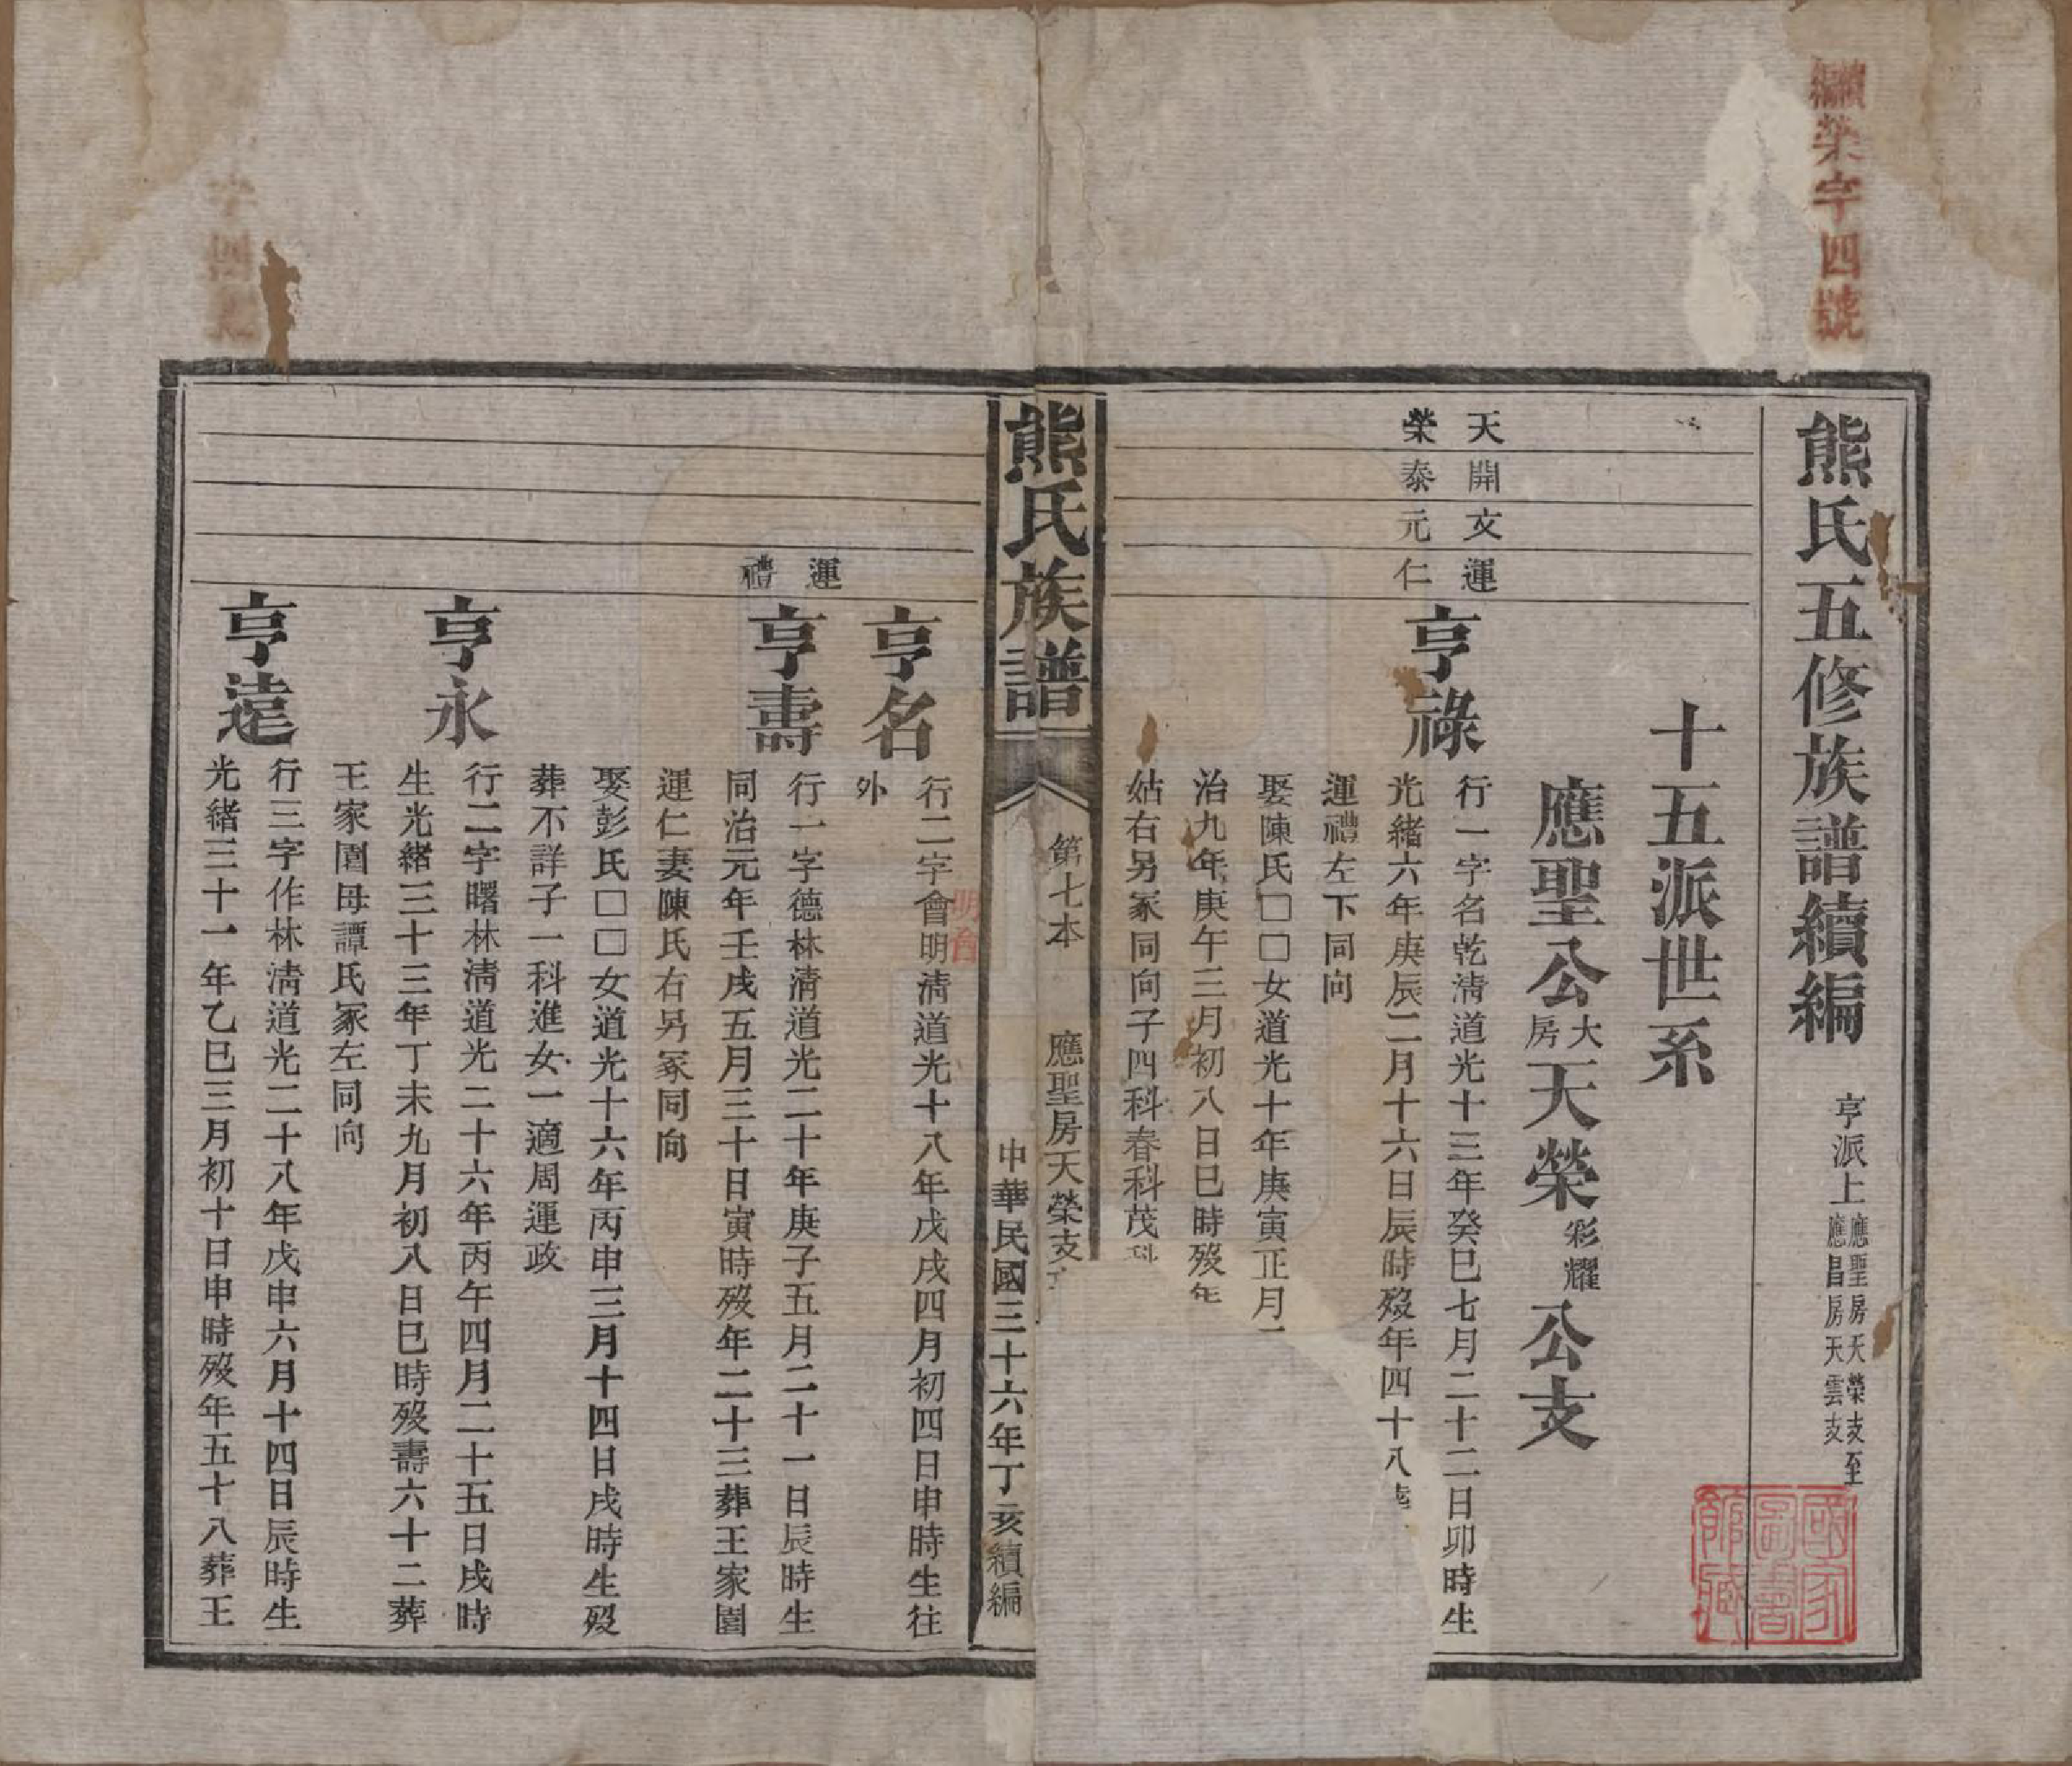 續編榮字四號
熊氏五修族譜續編 亨派上 應聖房天榮支至應昌房天雲支
國家圖書館藏
十五派世系
應聖公大房天榮彩耀公支
天榮
開泰
文元
運仁
亨祿
行一字名乾淸道光十三年癸巳七月二十二日卯時生
光緒六年庚辰二月十六日辰時歿年四十八葬
運禮左下同向
娶陳氏□□女道光十年庚寅正月
治九年庚午三月初八日巳時歿年
姑右另冢同向子四科春科茂科
熊氏族譜 第七本 應聖房天榮支
中華民國三十六年丁亥續編
亨名
行二字會明淸道光十八年戊戌四月初四日申時生往
外
明合
運禮
亨壽
行一字德林淸道光二十年庚子五月二十一日辰時生
同治元年壬戌五月三十日寅時歿年二十三葬王家園
運仁妻陳氏右另冢同向
娶彭氏□□女道光十六年丙申三月十四日戌時生歿
葬不詳子一科進女一適周運政
亨永
行二字曙林淸道光二十六年丙午四月二十五日戌時
生光緒三十三年丁未九月初八日巳時歿壽六十二葬
王家園母譚氏冢左同向
亨遠
行三字作林淸道光二十八年戊申六月十四日辰時生
光緒三十一年乙巳三月初十日申時歿年五十八葬王